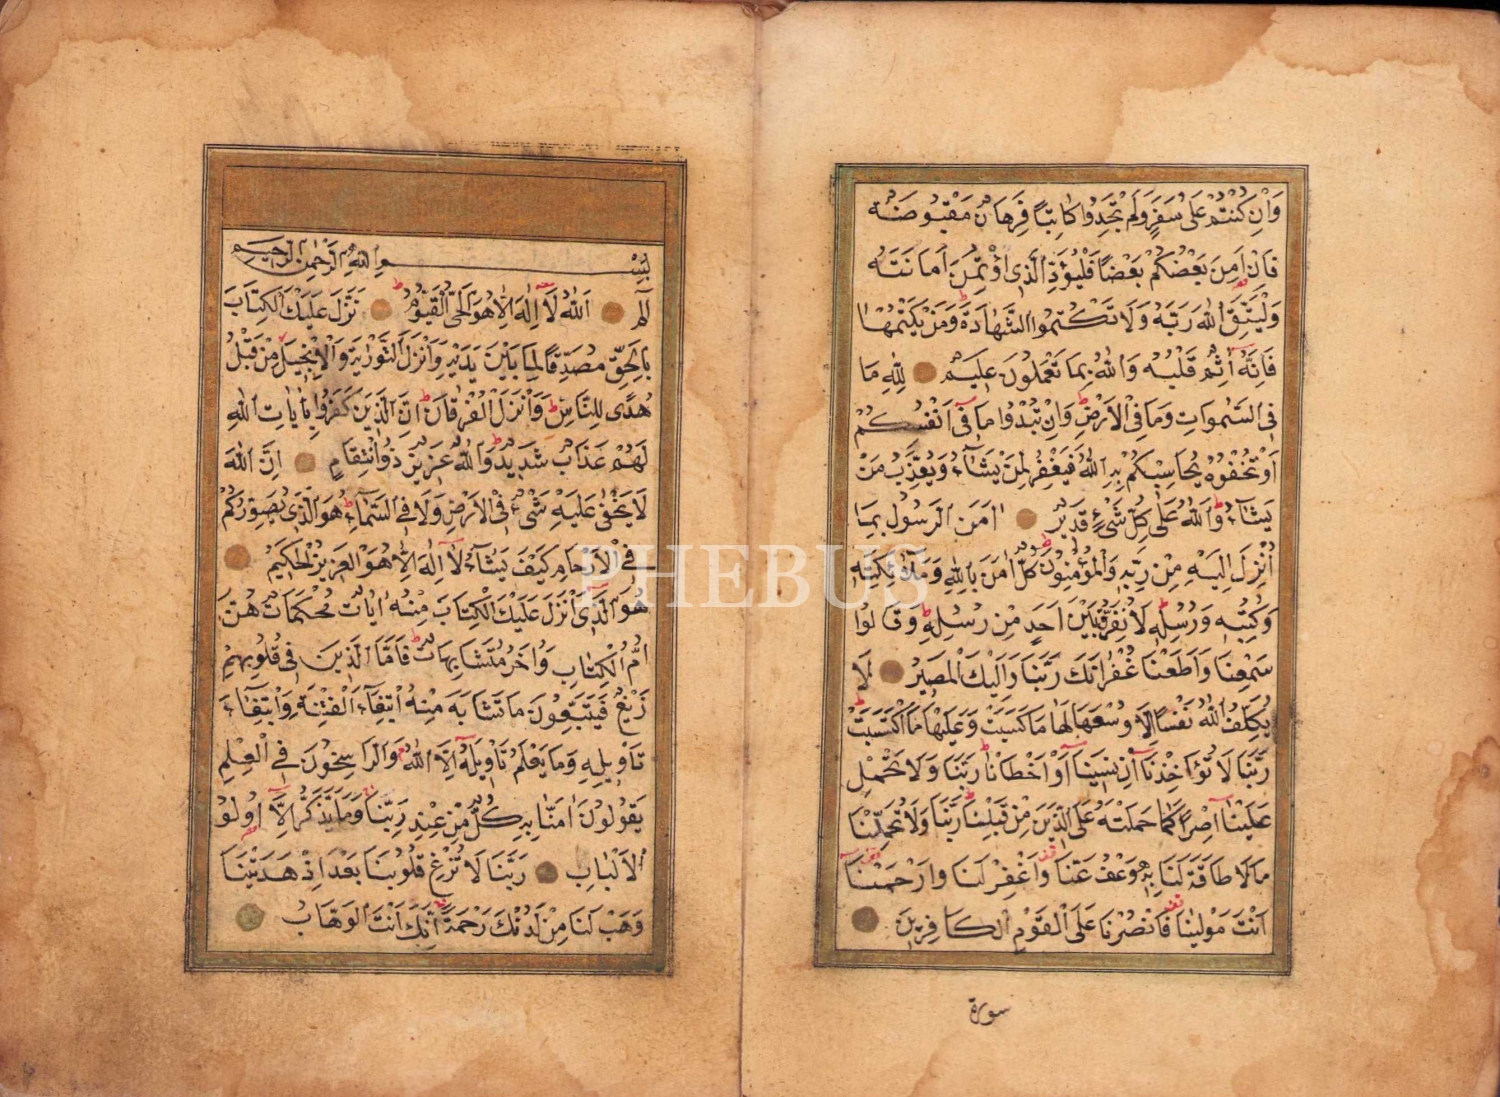 وَاِنْ كُنْتُمْ عَلٰى سَفَرٍ وَلَمْ تَجِدُوا كَاتِبًا فَرِهَانٌ مَقْبُوضَةٌ
فَاِنْ اَمِنَ بَعْضُكُمْ بَعْضًا فَلْيُؤَدِّ الَّذِى اؤْتُمِنَ اَمَانَتَهُ
وَلْيَتَّقِ اللّٰهَ رَبَّهُ وَلَا تَكْتُمُوا الشَّهَادَةَ وَمَنْ يَكْتُمْهَا
فَاِنَّهُ اٰثِمٌ قَلْبُهُ وَاللّٰهُ بِمَا تَعْمَلُونَ عَلِيمٌ لِلّٰهِ مَا
فِى السَّمٰوَاتِ وَمَا فِى الْاَرْضِ وَاِنْ تُبْدُوا مَا فِى اَنْفُسِكُمْ
اَوْ تُخْفُوهُ يُحَاسِبْكُمْ بِهِ اللّٰهُ فَيَغْفِرُ لِمَنْ يَشَاءُ وَيُعَذِّبُ مَنْ
يَشَاءُ وَاللّٰهُ عَلٰى كُلِّ شَىْءٍ قَدِيرٌ اٰمَنَ الرَّسُولُ بِمَا
اُنْزِلَ اِلَيْهِ مِنْ رَبِّهِ وَالْمُؤْمِنُونَ كُلٌّ اٰمَنَ بِاللّٰهِ وَمَلٰئِكَتِهِ
وَكُتُبِهِ وَرُسُلِهِ لَا نُفَرِّقُ بَيْنَ اَحَدٍ مِنْ رُسُلِهِ وَقَالُوا
سَمِعْنَا وَاَطَعْنَا غُفْرَانَكَ رَبَّنَا وَاِلَيْكَ الْمَصِيرُ لَا
يُكَلِّفُ اللّٰهُ نَفْسًا اِلَّا وُسْعَهَا لَهَا مَا كَسَبَتْ وَعَلَيْهَا مَا اكْتَسَبَتْ
رَبَّنَا لَا تُؤَاخِذْنَا اِنْ نَسِينَا اَوْ اَخْطَاْنَا رَبَّنَا وَلَا تَحْمِلْ
عَلَيْنَا اِصْرًا كَمَا حَمَلْتَهُ عَلَى الَّذِينَ مِنْ قَبْلِنَا رَبَّنَا وَلَا تُحَمِّلْنَا
مَا لَا طَاقَةَ لَنَا بِهِ وَاعْفُ عَنَّا وَاغْفِرْ لَنَا وَارْحَمْنَا
اَنْتَ مَوْلٰينَا فَانْصُرْنَا عَلَى الْقَوْمِ الْكَافِرِينَ
سورة
بِسْمِ اللّٰهِ الرَّحْمٰنِ الرَّحِيمِ
الٓمٓ اَللّٰهُ لَا اِلٰهَ اِلَّا هُوَ الْحَىُّ الْقَيُّومُ نَزَّلَ عَلَيْكَ الْكِتَابَ
بِالْحَقِّ مُصَدِّقًا لِمَا بَيْنَ يَدَيْهِ وَاَنْزَلَ التَّوْرٰيةَ وَالْاِنْجِيلَ مِنْ قَبْلُ
هُدًى لِلنَّاسِ وَاَنْزَلَ الْفُرْقَانَ اِنَّ الَّذِينَ كَفَرُوا بِاٰيَاتِ اللّٰهِ
لَهُمْ عَذَابٌ شَدِيدٌ وَاللّٰهُ عَزِيزٌ ذُو انْتِقَامٍ اِنَّ اللّٰهَ
لَا يَخْفٰى عَلَيْهِ شَىْءٌ فِى الْاَرْضِ وَلَا فِى السَّمَاءِ هُوَ الَّذِى يُصَوِّرُكُمْ
فِى الْاَرْحَامِ كَيْفَ يَشَاءُ لَا اِلٰهَ اِلَّا هُوَ الْعَزِيزُ الْحَكِيمُ
هُوَ الَّذِى اَنْزَلَ عَلَيْكَ الْكِتَابَ مِنْهُ اٰيَاتٌ مُحْكَمَاتٌ هُنَّ
اُمُّ الْكِتَابِ وَاُخَرُ مُتَشَابِهَاتٌ فَاَمَّا الَّذِينَ فِى قُلُوبِهِمْ
زَيْغٌ فَيَتَّبِعُونَ مَا تَشَابَهَ مِنْهُ ابْتِغَاءَ الْفِتْنَةِ وَابْتِغَاءَ
تَاْوِيلِهِ وَمَا يَعْلَمُ تَاْوِيلَهُ اِلَّا اللّٰهُ وَالرَّاسِخُونَ فِى الْعِلْمِ
يَقُولُونَ اٰمَنَّا بِهِ كُلٌّ مِنْ عِنْدِ رَبِّنَا وَمَا يَذَّكَّرُ اِلَّا اُولُوا
الْاَلْبَابِ رَبَّنَا لَا تُزِغْ قُلُوبَنَا بَعْدَ اِذْ هَدَيْتَنَا
وَهَبْ لَنَا مِنْ لَدُنْكَ رَحْمَةً اِنَّكَ اَنْتَ الْوَهَّابُ
PHEBUS